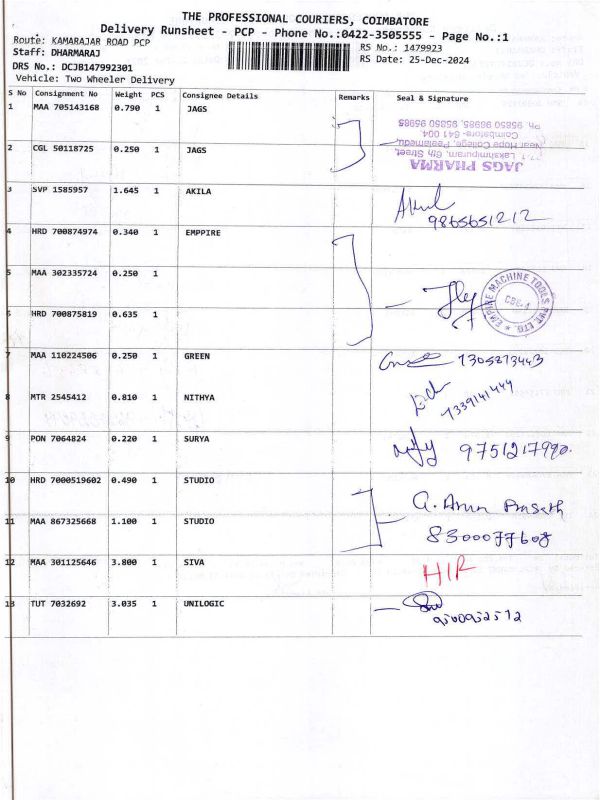 THE PROFESSIONAL COURIERS, COIMBATORE
Delivery Runsheet - PCP - Phone No.:0422-3505555 - Page No.:1
Route: KAMARAJAR ROAD PCP
RS No.: 1479923
Staff: DHARMARAJ
RS Date: 25-Dec-2024
DRS No.: DCJB147992301
Vehicle: Two Wheeler Delivery
S No Consignment No Weight PCS Consignee Details Remarks Seal & Signature
1 MAA 705143168 0.790 1 JAGS
2 CGL 50118725 0.250 1 JAGS
JAGS PHARMA
Lakshmipuram, 6th Street,
Near Hope College, Peelamedu,
Coimbatore- 641 004
Ph. 95850 98985, 95850 98985
3 SVP 1585957 1.645 1 AKILA
9865651212
4 HRD 700874974 0.340 1 EMPPIRE
5 MAA 302335724 0.250 1
EMPIRE MACHINE TOOLS PVT. LTD.
CBE-4
6 HRD 700875819 0.635 1
7 MAA 110224506 0.250 1 GREEN 7305873443
8 MTR 2545412 0.810 1 NITHYA 7339141444
9 PON 7064824 0.220 1 SURYA 9751217990.
10 HRD 7000519602 0.490 1 STUDIO G. Arun Prasath
11 MAA 867325668 1.100 1 STUDIO 8300077608
12 MAA 301125646 3.800 1 SIVA HIF
13 TUT 7032692 3.035 1 UNILOGIC
9500952512